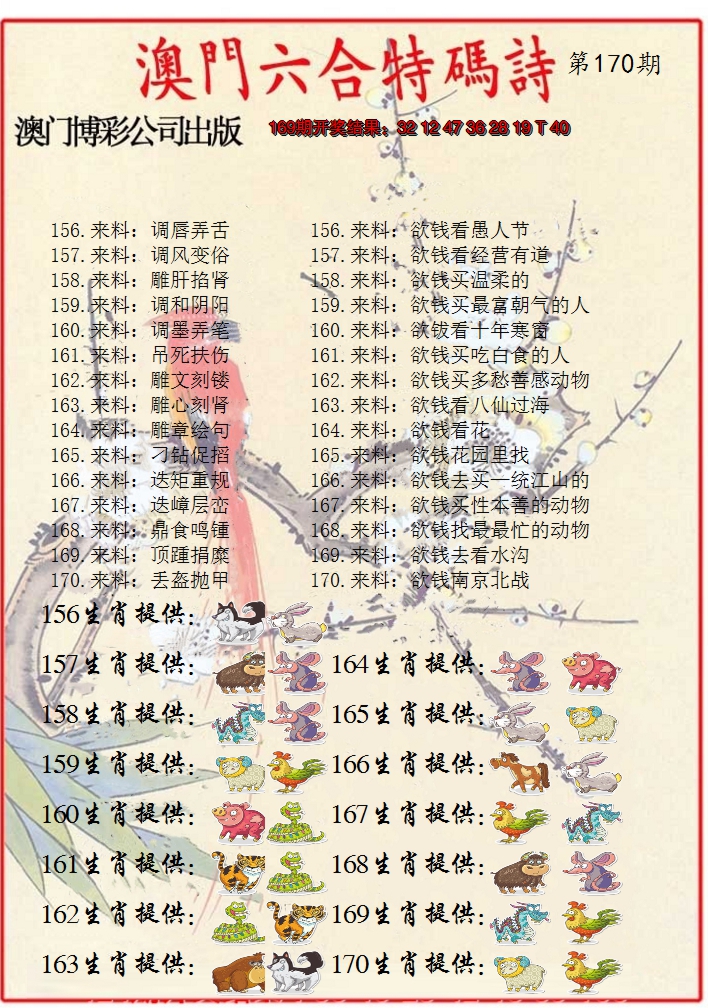 澳門六合特碼詩 第170期
澳门博彩公司出版 169期开奖结果：32 12 47 36 28 19 T 40
156.来料：调唇弄舌 156.来料：欲钱看愚人节
157.来料：调风变俗 157.来料：欲钱看经营有道
158.来料：雕肝掐肾 158.来料：欲钱买温柔的
159.来料：调和阴阳 159.来料：欲钱买最富朝气的人
160.来料：调墨弄笔 160.来料：欲钹看十年寒窗
161.来料：吊死扶伤 161.来料：欲钱买吃白食的人
162.来料：雕文刻镂 162.来料：欲钱买多愁善感动物
163.来料：雕心刻肾 163.来料：欲钱看八仙过海
164.来料：雕章绘句 164.来料：欲钱看花
165.来料：刁钻促掐 165.来料：欲钱花园里找
166.来料：迭矩重规 166.来料：欲钱去买一统江山的
167.来料：迭嶂层峦 167.来料：欲钱买性本善的动物
168.来料：鼎食鸣锺 168.来料：欲钱找最最忙的动物
169.来料：顶踵捐糜 169.来料：欲钱去看水沟
170.来料：丢盔抛甲 170.来料：欲钱南京北战
156生肖提供：
157生肖提供： 164生肖提供：
158生肖提供： 165生肖提供：
159生肖提供： 166生肖提供：
160生肖提供： 167生肖提供：
161生肖提供： 168生肖提供：
162生肖提供： 169生肖提供：
163生肖提供： 170生肖提供：